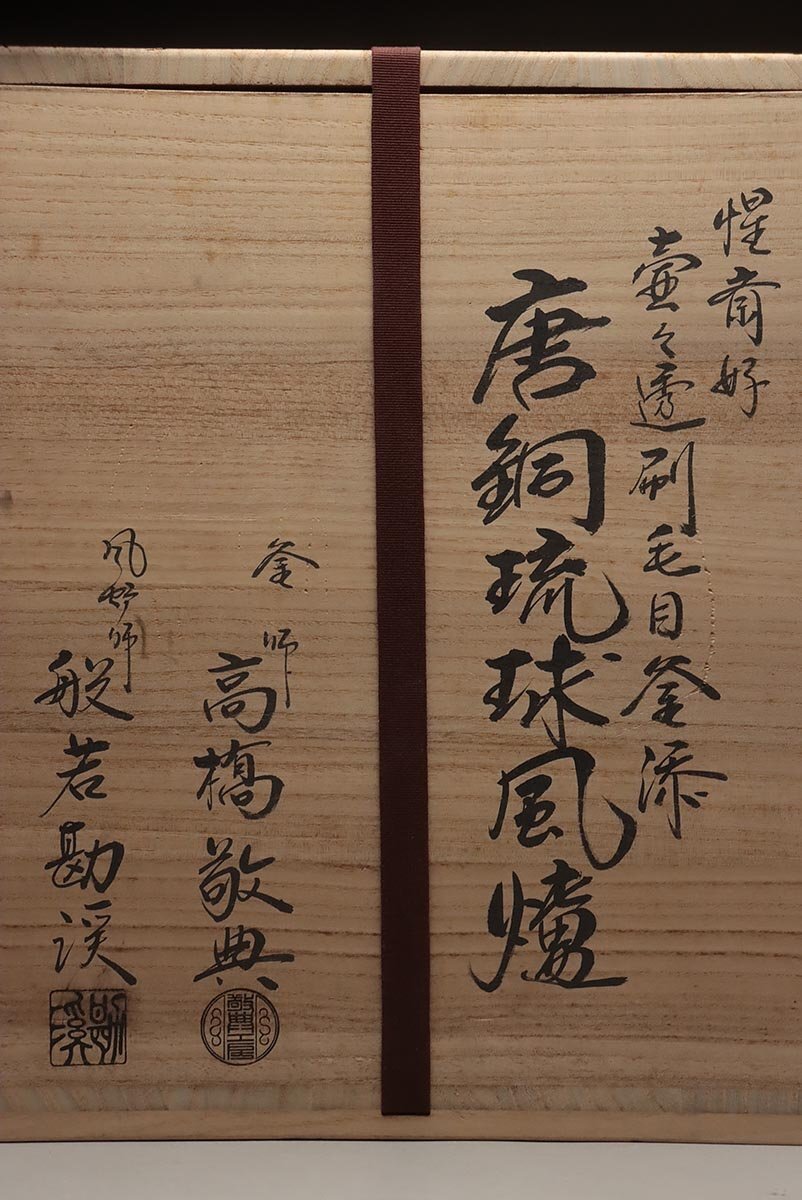 惺斎好
壷々透刷毛目釜添
唐銅琉球風爐
釜師
高橋敬典
風炉師
般若勘渓
勘渓